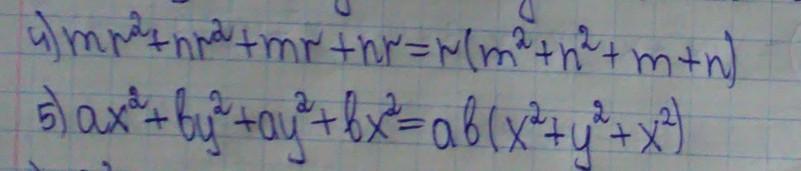 4) mr²+nr²+mr+nr=r(m²+n²+m+n)
5) ax²+by²+ay²+bx²=ab(x²+y²+x²)